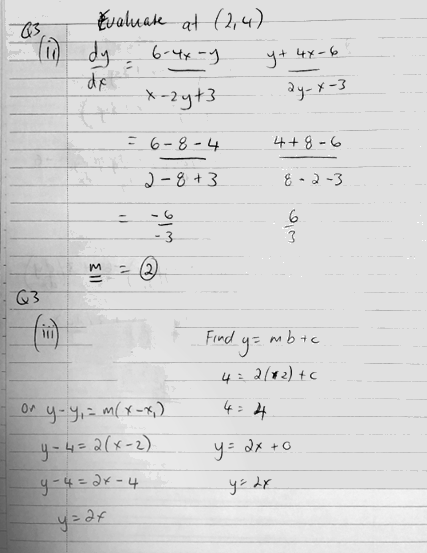 Q3
Evaluate at (2,4)
(ii) dy/dx = (6-4x-y)/(x-2y+3) (y+4x-6)/(2y-x-3)
= (6-8-4)/(2-8+3) (4+8-6)/(8-2-3)
= -6/-3 6/3
m = 2
Q3
(iii)
Find y = mb+c
4 = 2(x2)+c
or y-y₁ = m(x-x₁) 4 = 4
y-4 = 2(x-2) y = 2x+0
y-4 = 2x-4 y = 2x
y = 2x